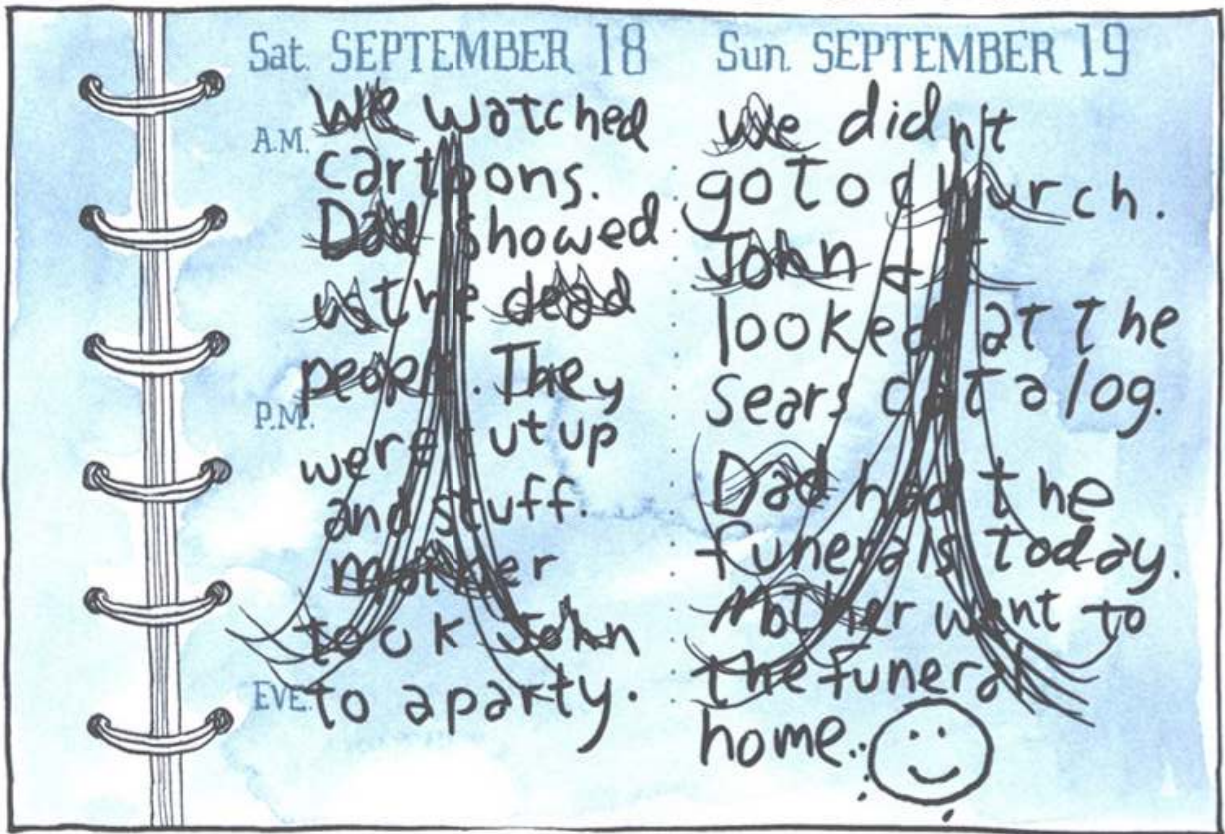 Sat. SEPTEMBER 18
A.M.
We watched
cartoons.
Dad showed
us the dead
people. They
P.M.
were cut up
and stuff.
mother
took John
EVE.
to a party.
Sun SEPTEMBER 19
We didn't
go to church.
John & I
looked at the
Sears catalog.
Dad had the
funerals today.
Mother went to
the funeral
home.